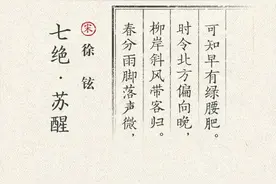 七绝·苏醒
宋 徐铉
春分雨脚落声微，
柳岸斜风带客归。
时令北方偏向晚，
可知早有绿腰肥。